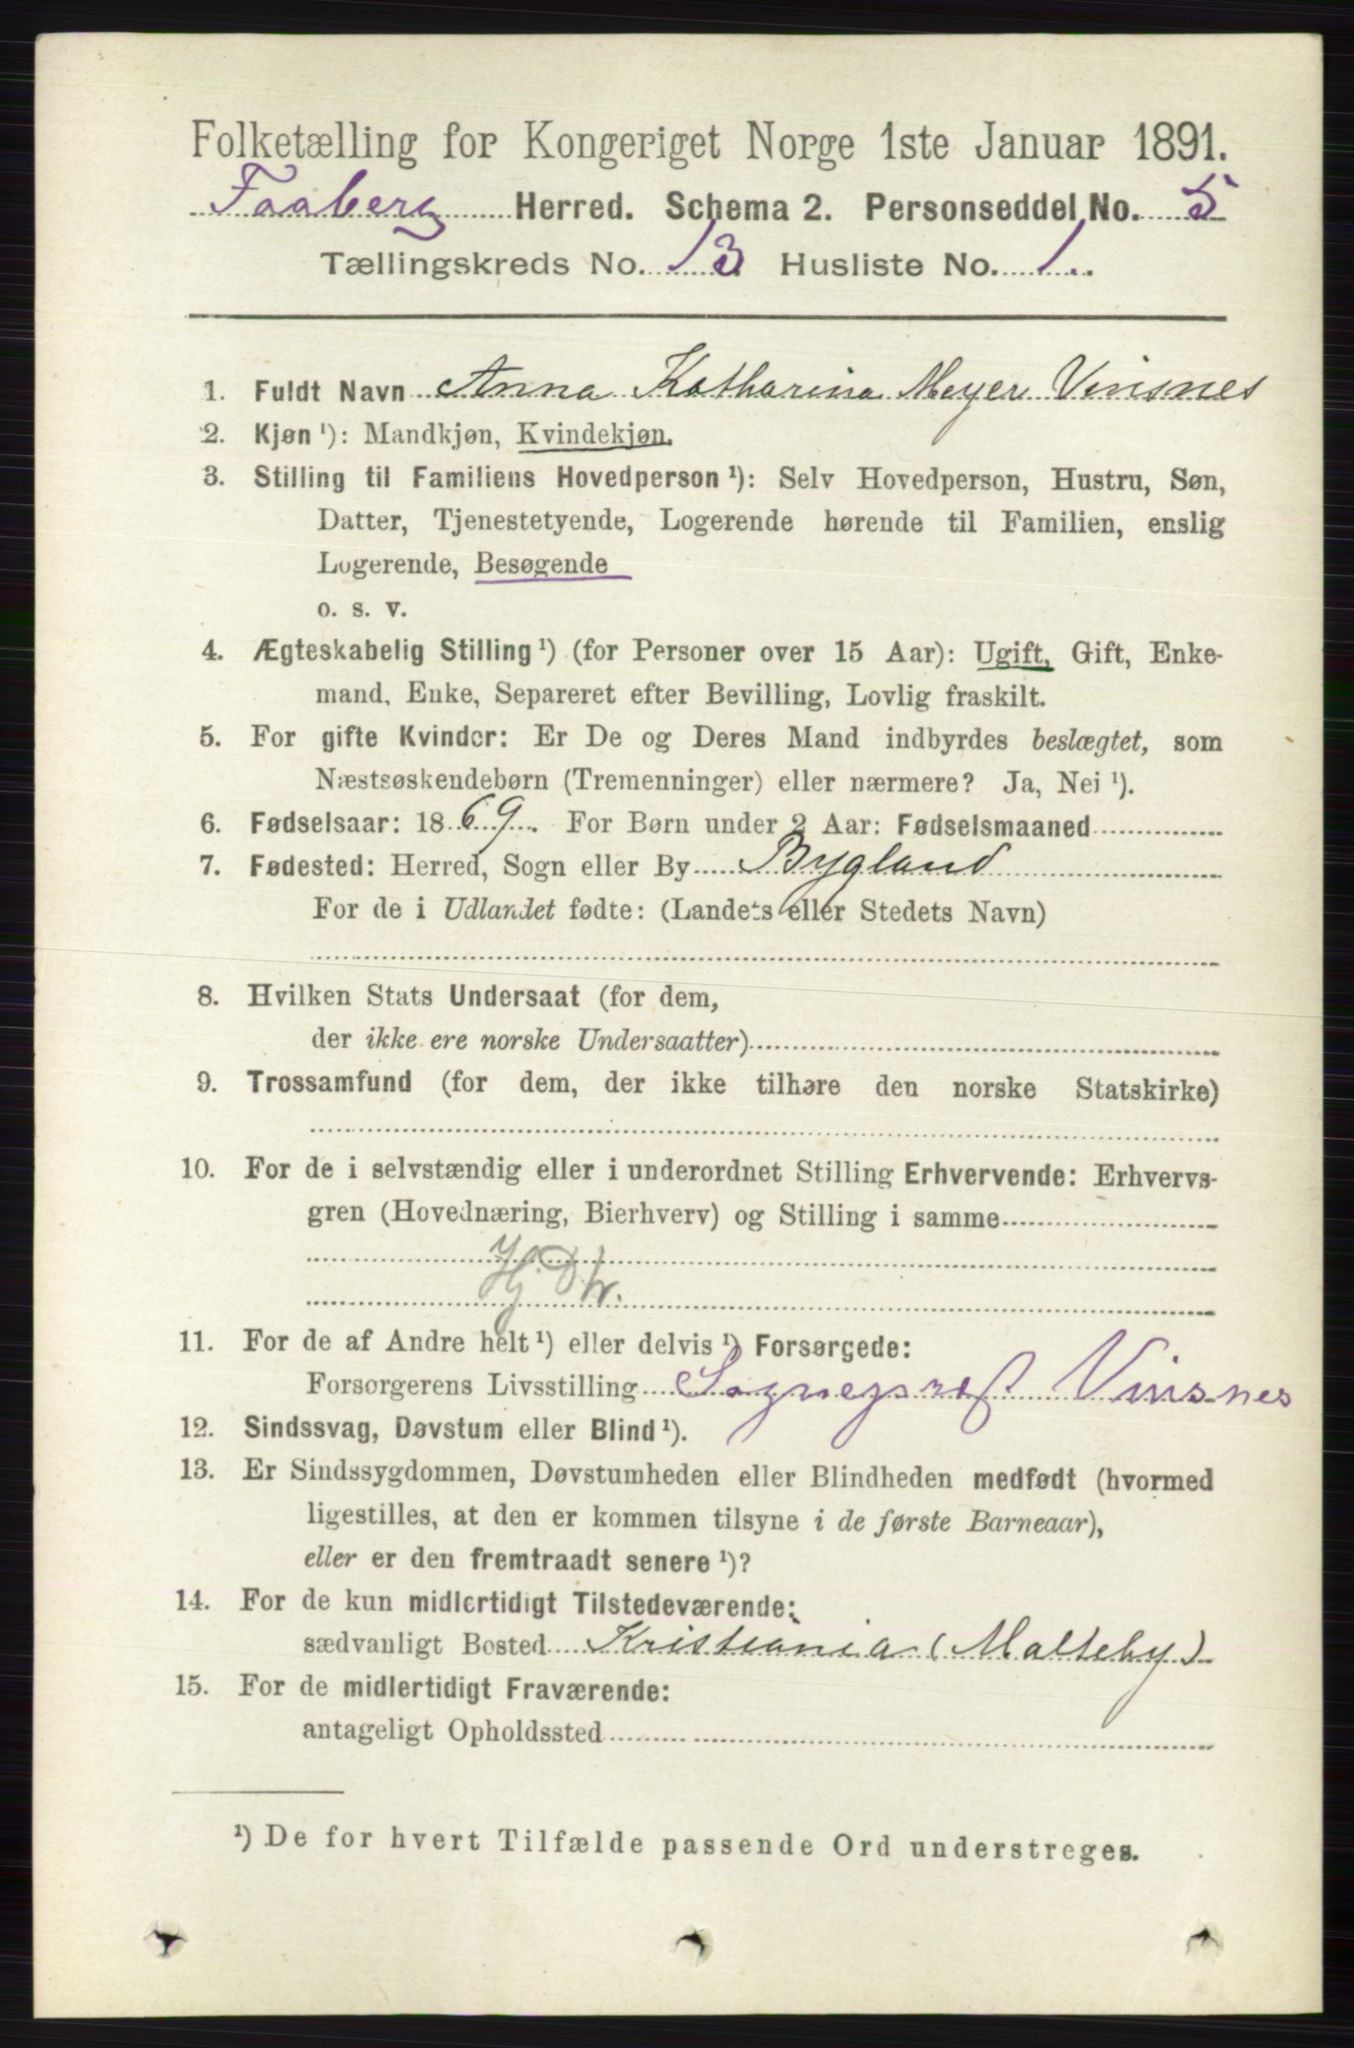 Folketælling for Kongeriget Norge 1ste Januar 1891.
Faaberg Herred. Schema 2. Personseddel No. 5
Tællingskreds No. 13 Husliste No. 1.
1. Fuldt Navn Anna Katharina Meyer Vinsnes
2. Kjøn ¹): Mandkjøn, Kvindekjøn.
3. Stilling til Familiens Hovedperson ¹): Selv Hovedperson, Hustru, Søn,
Datter, Tjenestetyende, Logerende hørende til Familien, enslig
Logerende, Besøgende
o. s. v.
4. Ægteskabelig Stilling ¹) (for Personer over 15 Aar): Ugift, Gift, Enke-
mand, Enke, Separeret efter Bevilling, Lovlig fraskilt.
5. For gifte Kvinder: Er De og Deres Mand indbyrdes beslægtet, som
Næstsøskendebørn (Tremenninger) eller nærmere? Ja, Nei ¹).
6. Fødselsaar: 1869. For Børn under 2 Aar: Fødselsmaaned
7. Fødested: Herred, Sogn eller By Bygland
For de i Udlandet fødte: (Landets eller Stedets Navn)
8. Hvilken Stats Undersaat (for dem,
der ikke ere norske Undersaatter)
9. Trossamfund (for dem, der ikke tilhøre den norske Statskirke)
10. For de i selvstændig eller i underordnet Stilling Erhvervende: Erhvervs-
gren (Hovednæring, Bierhverv) og Stilling i samme
Hj. Dtr.
11. For de af Andre helt ¹) eller delvis ¹) Forsørgede:
Forsorgerens Livsstilling Sogneprest Vinsnes
12. Sindssvag, Døvstum eller Blind ¹).
13. Er Sindssygdommen, Døvstumheden eller Blindheden medfødt (hvormed
ligestilles, at den er kommen tilsyne i de første Barneaar),
eller er den fremtraadt senere ¹)?
14. For de kun midlertidigt Tilstedeværende:
sædvanligt Bosted Kristiania (Malteby)
15. For de midlertidigt Fraværende:
antageligt Opholdssted
¹) De for hvert Tilfælde passende Ord understreges.